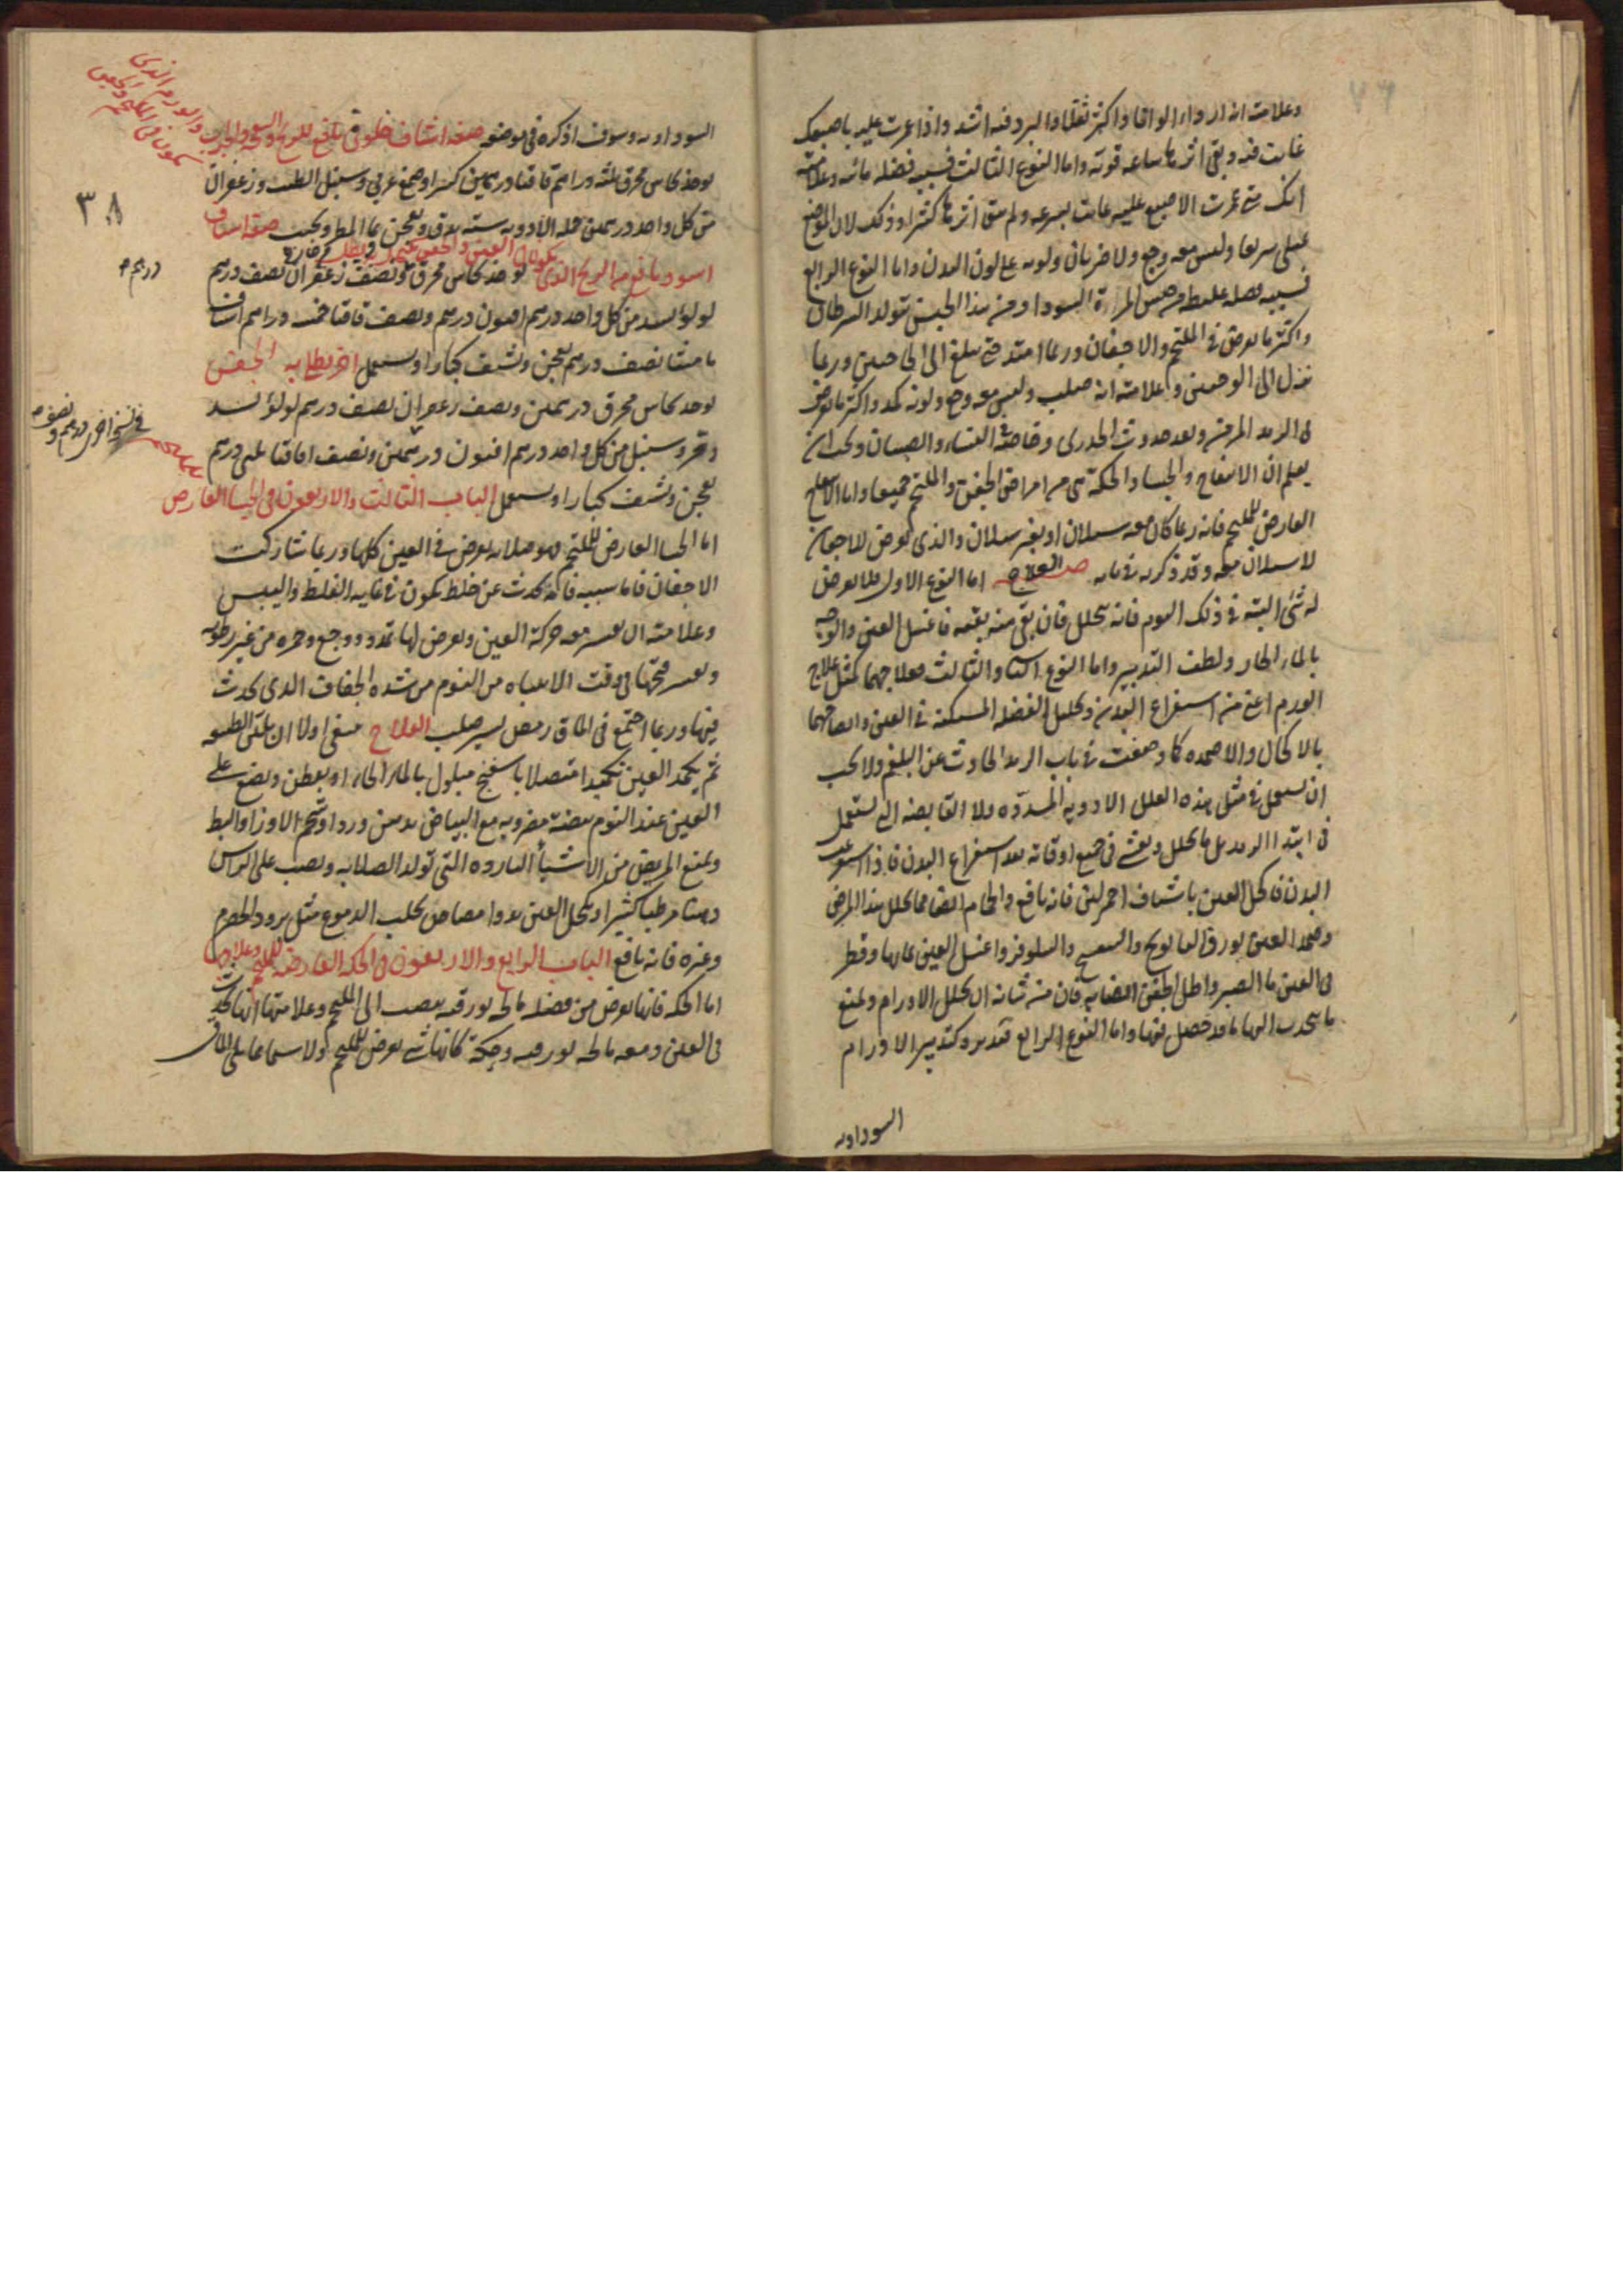 وعلامته انه اردا لونا واكثر ثقلا والبرد فيه اشد واذا غمزت عليه باصبعك
غابت فيه وبقى اثرها ساعه قويه واما النوع الثالث فسببه فضله مائيه وعلامته
انك متى غمزت الاصبع عليه غابت بسرعه ولم يبق اثرها كثيرا وذلك لان الموضع
يمتلى سريعا وليس معه وجع ولا ضربان ولونه على لون البدن واما النوع الرابع
فسببه فضله غليظه من جنس المرة السودا ومن هذا الجنس تتولد السرطان
واكثر ما يعرض فى الملتحم والاجفان وربما امتد حتى يبلغ الى الحاجبين وربما
نزل الى الوجنتين وعلامته انه صلب وليس معه وجع ولونه كمد واكثر ما يعرض
فى الرمد المزمن وبعد حدوث الجدرى وخاصة فى النساء والصبيان ويجب ان
يعلم ان الانتفاخ والجسا والحكة هى من امراض الجفن والملتحم جميعا واما الانتفاخ
العارض للملتحم فانه ربما كان معه سيلان او بغير سيلان والذى يعرض للاجفان
لا سيلان معه وقد ذكرته فى بابه العلاج اما النوع الاول فلا يعرض
له شئ البتة فى ذلك اليوم فانه يتحلل فان بقى منه بقيه فاغسل العين والوجه
بالماء الحار ولطف التدبير واما النوع الثانى والثالث فعلاجهما كمثل علاج
الورم اعنى من استفراغ البدن وتحليل الفضله المستكنه فى العين وانضاجهما
بالاكحال والاضمده كما وصفت فى باب الرمد الحادث عن البلغم ولا يجب
ان تستعمل فى مثل هذه العلل الادويه المسدده ولا القابضه التى تستعمل
فى ابتدا الرمد بل ما يحلل ويفش فى جميع اوقاته بعد استفراغ البدن فاذا استفرغت
البدن فاكحل العين باشياف احمر لين فانه نافع والحمام ايضا مما يحلل هذا المرض
وضمد العين بورق البابونج والبنفسج والنيلوفر واغسل العين بمايها وقطر
فى العين ما الصبر واطل الجفن ايضا به فان من شانه ان يحلل الاورام ويمنع
ما ينجذب اليها ما قد حصل فيها واما النوع الرابع فتدبيره كتدبير الاورام
السوداويه
السوداويه وسوف اذكره فى موضعه صفة اشياف خلوقى نافع للريح والسبل والجرب
والورم الذى
يكون فى الملتحم والجفن
يوخذ نحاس محرق ثلثه دراهم قاقيا درهمين كثيرا وصمغ عربى وسنبل الطيب وزعفران
٣٨
من كل واحد درهمين جمله الادويه سته يدق ويعجن بما المطر ويحبب صفة اشياف
اسود نافع من الريح الذى يكون فى العين والجفن يوخذ نحاس محرق ونصف زعفران نصف درهم
درهم
لولو اسد من كل واحد درهم افيون درهم ونصف قاقيا خمسة دراهم اشياف
ماميثا نصف درهم يعجن ويشيف كبارا ويستعمل اخر يطلا به الجفن
يوخذ نحاس محرق درهمين ونصف زعفران نصف درهم لولو اسد
فى نسخة اخرى درهم ونصف
ومر وسنبل من كل واحد درهم افيون درهمين ونصف اقاقيا ثلثى درهم
يعجن ويشيف كبارا ويستعمل الباب الثالث والاربعون فى الجسا العارض
للملتحم
اما الجسا العارض للملتحم فهو صلابه يعرض فى العين كلها وربما شاركت
الاجفان فاما سببه فانه يحدث عن خلط يكون فى غايه الغلظ واليبس
وعلامته ان يعسر معه حركة العين ويعرض لها تمدد ووجع وحمره من غير رطوبه
ويعسر فتحها فى وقت الانتباه من النوم من شده الجفاف الذى يحدث
فيها وربما اجتمع فى الماق رمص يسير صلب العلاج ينبغى اولا ان ينقى الطبيعه
ثم يكمد العين تكميدا متصلا باسفنج مبلول بالماء الحار او بقطن ويضع على
العين عند النوم بيضة مضروبه مع البياض بدهن ورد او شحم الاوز او البط
ويمنع المريض من الاشياء البارده التى تولد الصلابه ويصب على الراس
دهنا مرطبا كثيرا ويكحل العين بدوا مصاص يجلب الدموع مثل برود الحصرم
وغيره فانه نافع الباب الرابع والاربعون فى الحكه العارضه للملتحم وعلاجها
اما الحكه فانها يعرض من فضله مالحه بورقيه ينصب الى الملتحم وعلامتها انها تحدث
فى العين دمعه مالحه بورقيه وحكة كانها شى يعرض للملتحم ولا سيما مما يلى الماق